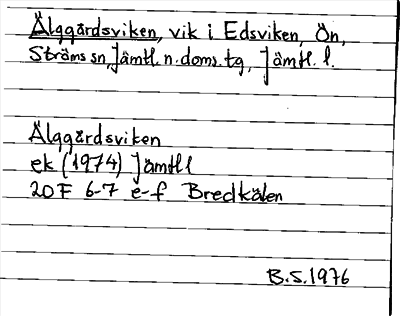 Älggårdsviken, vik i Edsviken, Ön,
Ströms sn, Jämtl. n. doms. tg, Jämtl. l.
Älggårdsviken
ek (1974) Jämtl l
20F 6-7 e-f Bredkälen
B.S. 1976